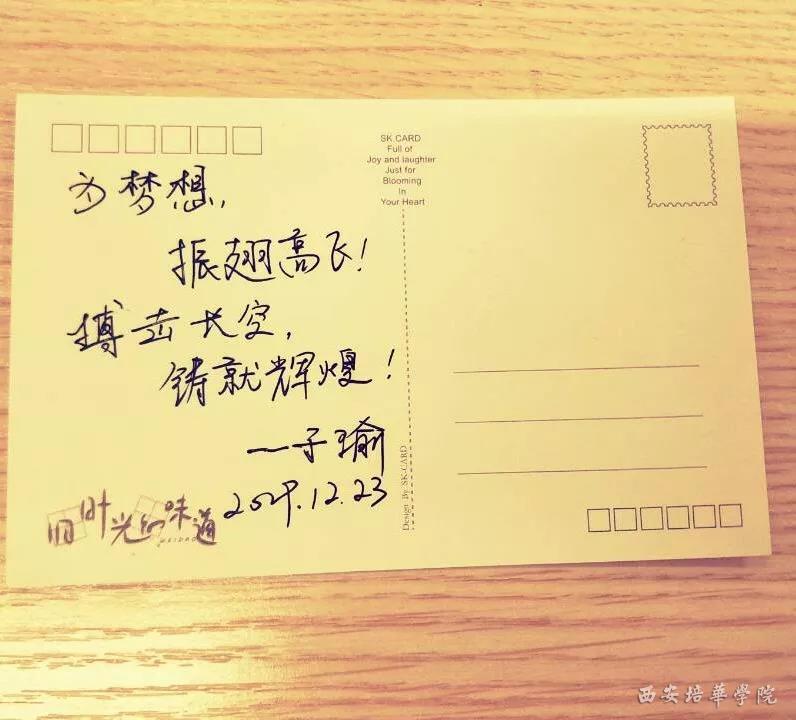 SK CARD
Full of
Joy and laughter
Just for
Blooming
In
Your Heart
为梦想，
振翅高飞！
搏击长空，
铸就辉煌！
—子瑜
12.23
旧时光的味道
Design By SK-CARD
西安培華學院